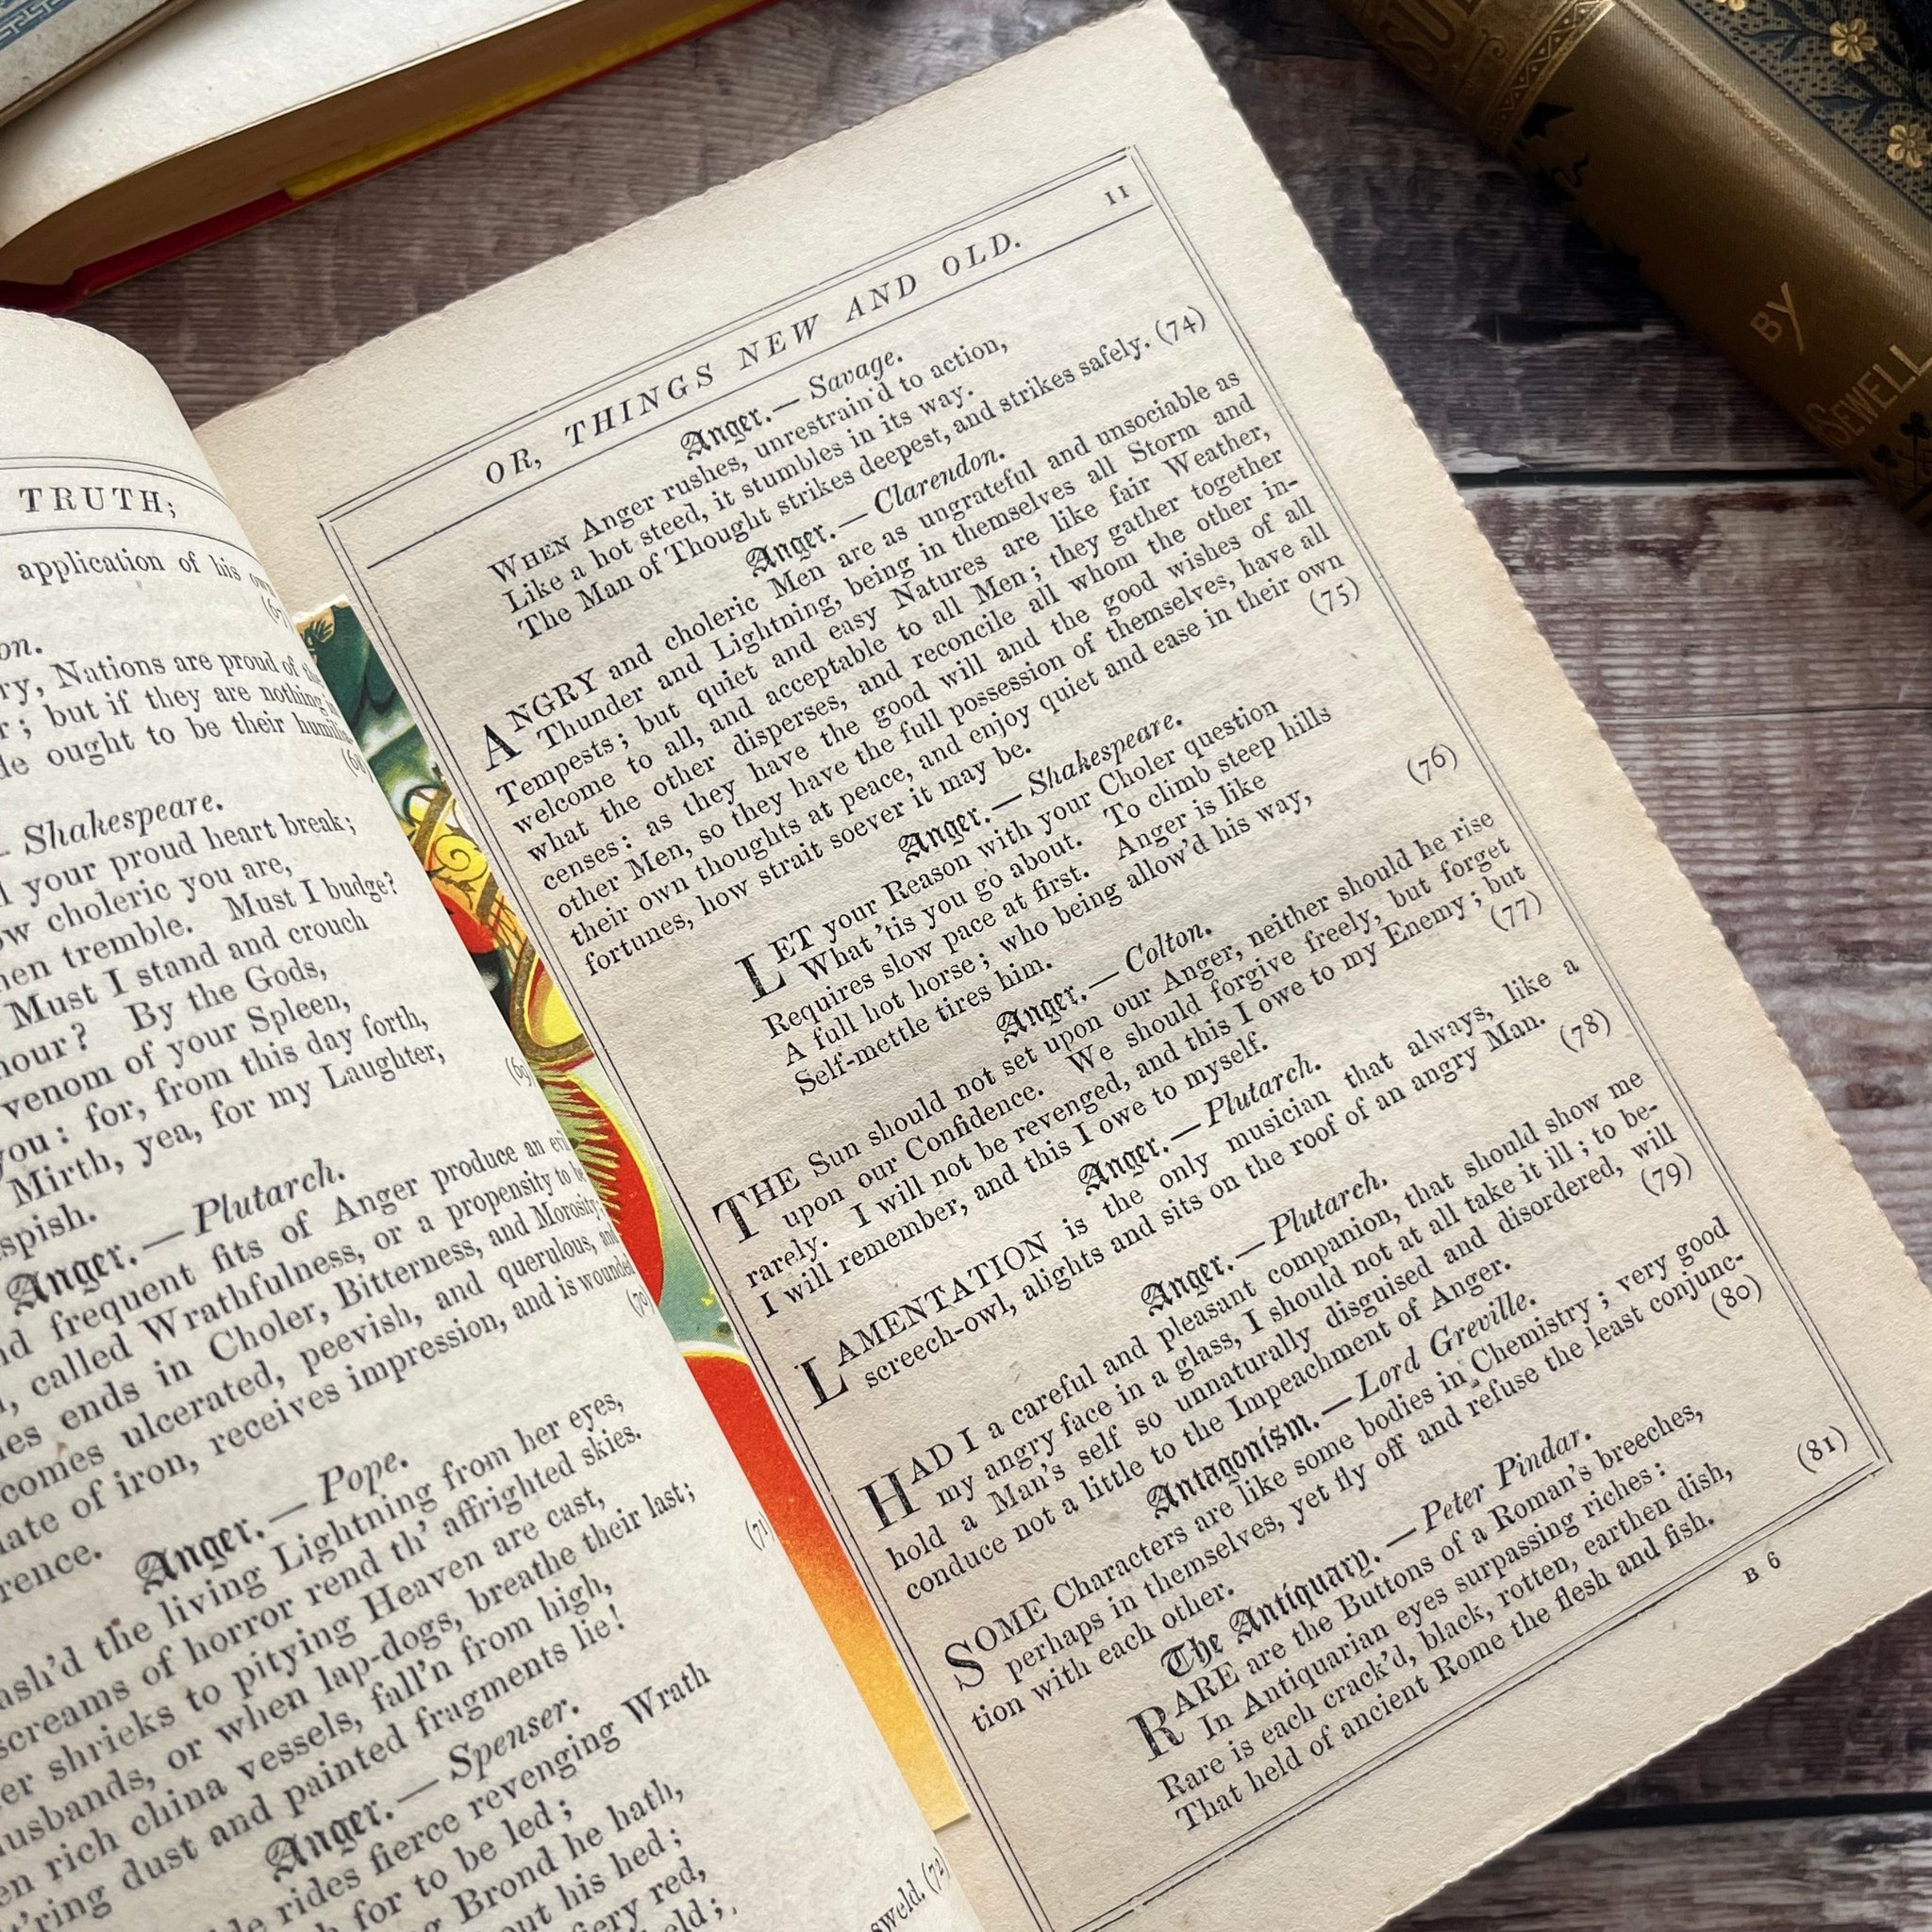 TRUTH;
application of his
on.
ry, Nations are proud of
r; but if they are nothing
de ought to be their
— Shakespeare.
l your proud heart break;
ow choleric you are,
hen tremble. Must I budge?
Must I stand and crouch
nour? By the Gods,
venom of your Spleen,
you: for, from this day forth,
Mirth, yea, for my Laughter,
spish.
(69
Anger.—Plutarch.
nd frequent fits of Anger produce an evil
, called Wrathfulness, or a propensity to be
es ends in Choler, Bitterness, and Morosity
comes ulcerated, peevish, and querulous, and
late of iron, receives impression, and is wounded
rence.
(70
Anger.—Pope.
ash'd the living Lightning from her eyes,
screams of horror rend th' affrighted skies.
er shrieks to pitying Heaven are cast,
usbands, or when lap-dogs, breathe their last;
en rich china vessels, fall'n from high,
t'ring dust and painted fragments lie!
(71
Anger.—Spenser.
rides fierce revenging Wrath
for to be led;
Brond he hath,
out his hed;
fiery red,
eld;
sweld. (72
OR, THINGS NEW AND OLD.
11
Anger.—Savage.
WHEN Anger rushes, unrestrain'd to action,
Like a hot steed, it stumbles in its way.
The Man of Thought strikes deepest, and strikes safely. (74)
Anger.—Clarendon.
ANGRY and choleric Men are as ungrateful and unsociable as
Thunder and Lightning, being in themselves all Storm and
Tempests; but quiet and easy Natures are like fair Weather,
welcome to all, and acceptable to all Men; they gather together
what the other disperses, and reconcile all whom the other in-
censes: as they have the good will and the good wishes of all
other Men, so they have the full possession of themselves, have all
their own thoughts at peace, and enjoy quiet and ease in their own
fortunes, how strait soever it may be.
(75)
Anger.—Shakespeare.
LET your Reason with your Choler question
What 'tis you go about. To climb steep hills
Requires slow pace at first. Anger is like
A full hot horse; who being allow'd his way,
Self-mettle tires him.
(76)
Anger.—Colton.
THE Sun should not set upon our Anger, neither should he rise
upon our Confidence. We should forgive freely, but forget
rarely. I will not be revenged, and this I owe to my Enemy; but
I will remember, and this I owe to myself.
(77)
Anger.—Plutarch.
LAMENTATION is the only musician that always, like a
screech-owl, alights and sits on the roof of an angry Man.
(78)
Anger.—Plutarch.
HAD I a careful and pleasant companion, that should show me
my angry face in a glass, I should not at all take it ill; to be-
hold a Man's self so unnaturally disguised and disordered, will
conduce not a little to the Impeachment of Anger.
(79)
Antagonism.—Lord Greville.
SOME Characters are like some bodies in Chemistry; very good
perhaps in themselves, yet fly off and refuse the least conjunc-
tion with each other.
(80)
The Antiquary.—Peter Pindar.
RARE are the Buttons of a Roman's breeches,
In Antiquarian eyes surpassing riches:
Rare is each crack'd, black, rotten, earthen dish,
That held of ancient Rome the flesh and fish.
(81)
B 6
BY
SEWELL